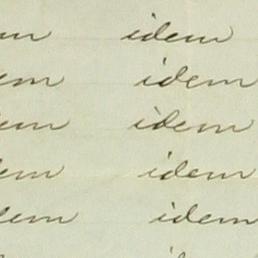 em idem
em idem
em idem
em idem
dem idem